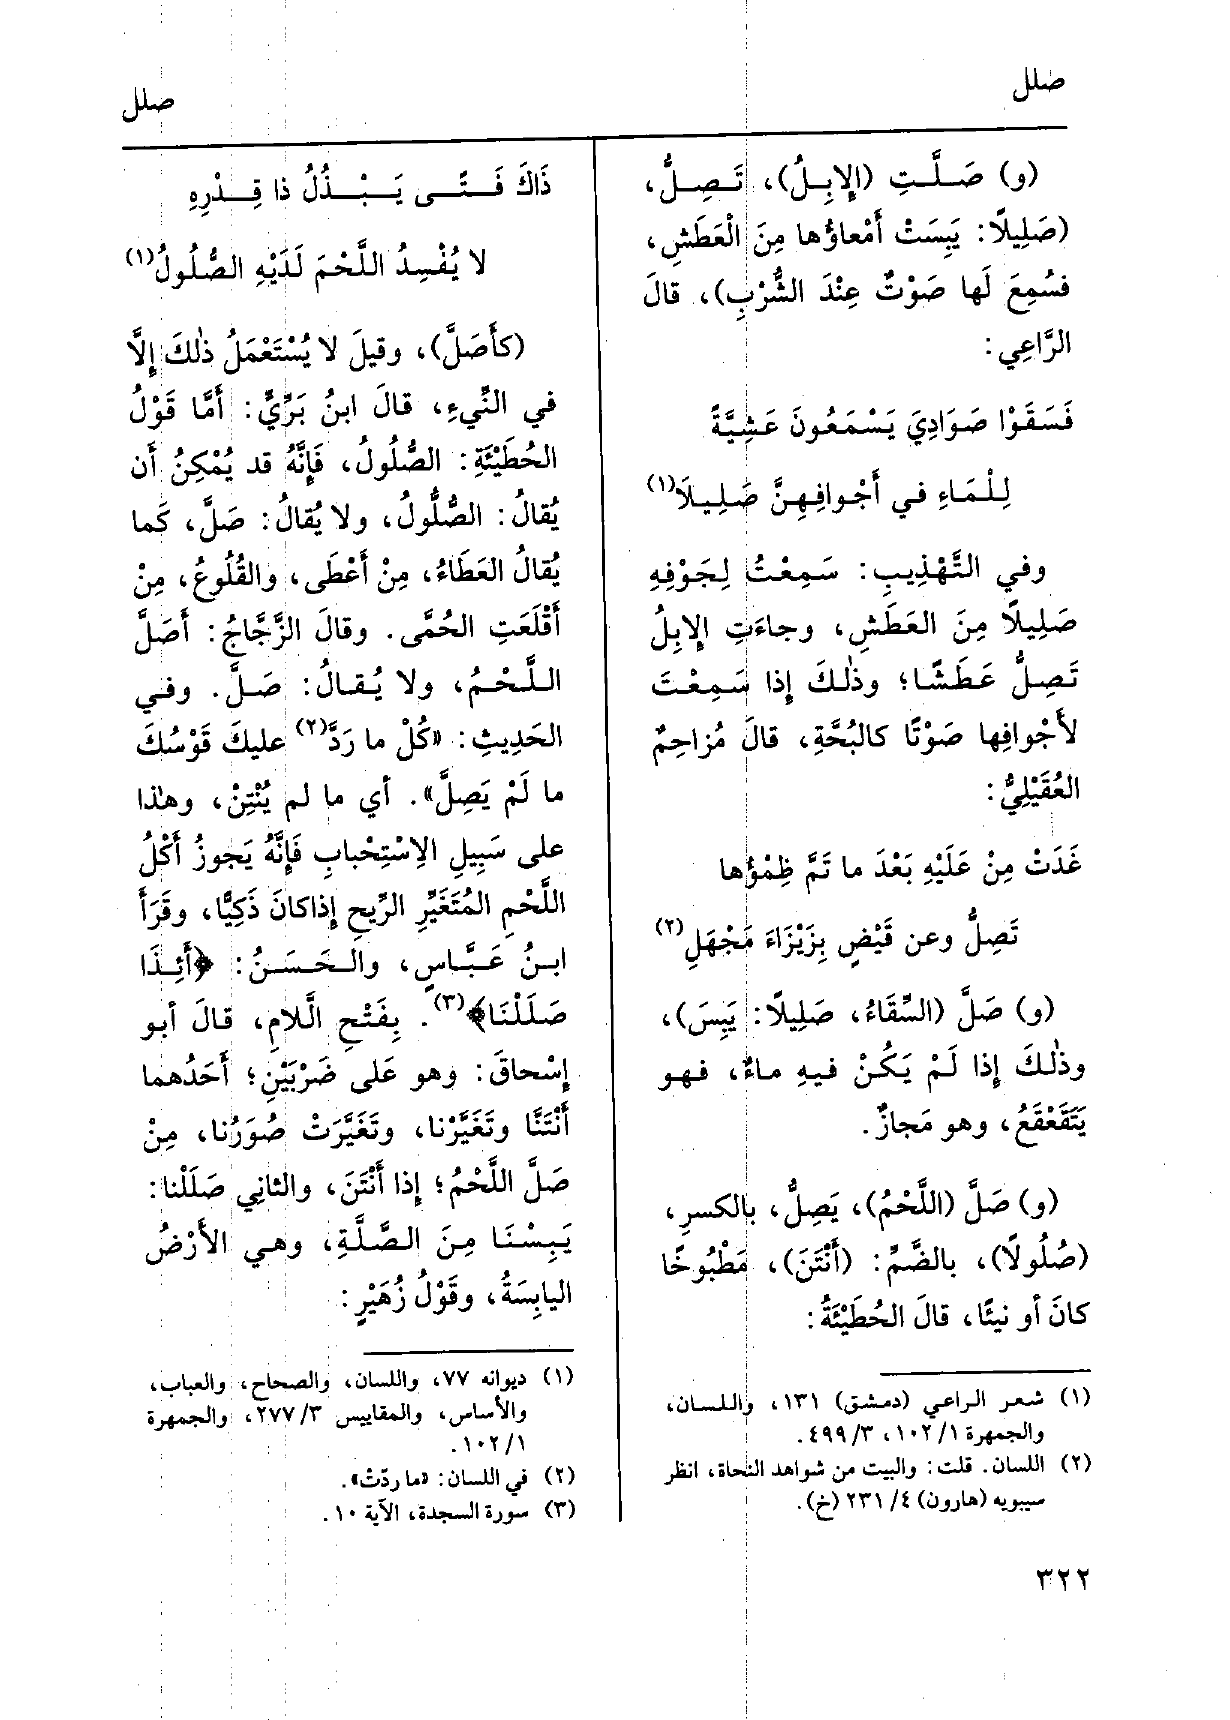 صلل
صلل
(و) صَلَّتِ (الإِبِلُ)، تَصِلُّ،
(صَلِيلًا: يَبِسَتْ أَمْعاؤُها مِنَ الْعَطَشِ،
فسُمِعَ لَها صَوْتٌ عِنْدَ الشُّرْبِ)، قالَ
الرَّاعِي:
فَسَقَوْا صَوَادِيَ يَسْمَعُونَ عَشِيَّةً
لِلْمَاءِ في أَجْوافِهِنَّ صَلِيلَا(١)
وفي التَّهْذِيبِ: سَمِعْتُ لِجَوْفِهِ
صَلِيلًا مِنَ العَطَشِ، وجاءَتِ الإِبِلُ
تَصِلُّ عَطَشًا؛ وذٰلكَ إِذا سَمِعْتَ
لأَجْوافِها صَوْتًا كالبُحَّةِ، قالَ مُزاحِمٌ
العُقَيْلِيُّ:
غَدَتْ مِنْ عَلَيْهِ بَعْدَ ما تَمَّ ظِمْؤُها
تَصِلُّ وعن قَيْضٍ بِزَيْزَاءَ مَجْهَلِ(٢)
(و) صَلَّ (السِّقَاءُ، صَلِيلًا: يَبِسَ)،
وذٰلكَ إِذا لَمْ يَكُنْ فيهِ ماءٌ، فهو
يَتَقَعْقَعُ، وهو مَجازٌ.
(و) صَلَّ (اللَّحْمُ)، يَصِلُّ، بالكسرِ،
(صُلُولًا)، بالضَّمِّ: (أَنْتَنَ)، مَطْبُوخًا
كانَ أو نيئًا، قالَ الحُطَيْئَةُ:
(١) شعر الراعي (دمشق) ١٣١، واللسان،
والجمهرة ١/ ١٠٢، ٣/ ٤٩٩.
(٢) اللسان. قلت: والبيت من شواهد النحاة، انظر
سيبويه (هارون) ٤/ ٢٣١ (خ).
ذَاكَ فَتًى يَبْذُلُ ذا قِدْرِهِ
لا يُفْسِدُ اللَّحْمَ لَدَيْهِ الصُّلُولُ(١)
(كأَصَلَّ)، وقيلَ لا يُسْتَعْمَلُ ذٰلكَ إِلَّا
في النِّيءِ، قالَ ابنُ بَرِّيٍّ: أَمَّا قَوْلُ
الحُطَيْئَةِ: الصُّلُولُ، فَإِنَّهُ قد يُمْكِنُ أن
يُقالُ: الصُّلُولُ، ولا يُقالُ: صَلَّ، كَما
يُقالُ العَطَاءُ، مِنْ أَعْطَى، والقُلُوعُ، مِنْ
أَقْلَعَتِ الحُمَّى. وقالَ الزَّجَّاجُ: أَصَلَّ
اللَّحْمُ، ولا يُقالُ: صَلَّ. وفي
الحَدِيثِ: «كُلْ ما رَدَّ(٢) عليكَ قَوْسُكَ
ما لَمْ يَصِلَّ». أي ما لم يُنْتِنْ، وهٰذا
على سَبِيلِ الاِسْتِحْبابِ فَإِنَّهُ يَجوزُ أَكْلُ
اللَّحْمِ المُتَغَيِّرِ الرِّيحِ إِذاكانَ ذَكِيًّا، وقَرَأَ
ابنُ عَبَّاسٍ، والحَسَنُ: ﴿أَئِذَا
صَلَلْنَا﴾(٣). بِفَتْحِ الَّلامِ، قالَ أبو
إِسْحاقَ: وهو عَلى ضَرْبَيْنِ؛ أَحَدُهما
أَنْتَنَّا وتَغَيَّرْنا، وتَغَيَّرَتْ صُوَرُنا، مِنْ
صَلَّ اللَّحْمُ؛ إِذا أَنْتَنَ، والثانِي صَلَلْنا:
يَبِسْنَا مِنَ الصَّلَّةِ، وهي الأَرْضُ
اليابِسَةُ، وقَوْلُ زُهَيْرٍ:
(١) ديوانه ٧٧، واللسان، والصحاح، والعباب،
والأساس، والمقاييس ٣/ ٢٧٧، والجمهرة
١/ ١٠٢.
(٢) في اللسان: «ما ردّتْ».
(٣) سورة السجدة، الآية ١٠.
٣٢٢